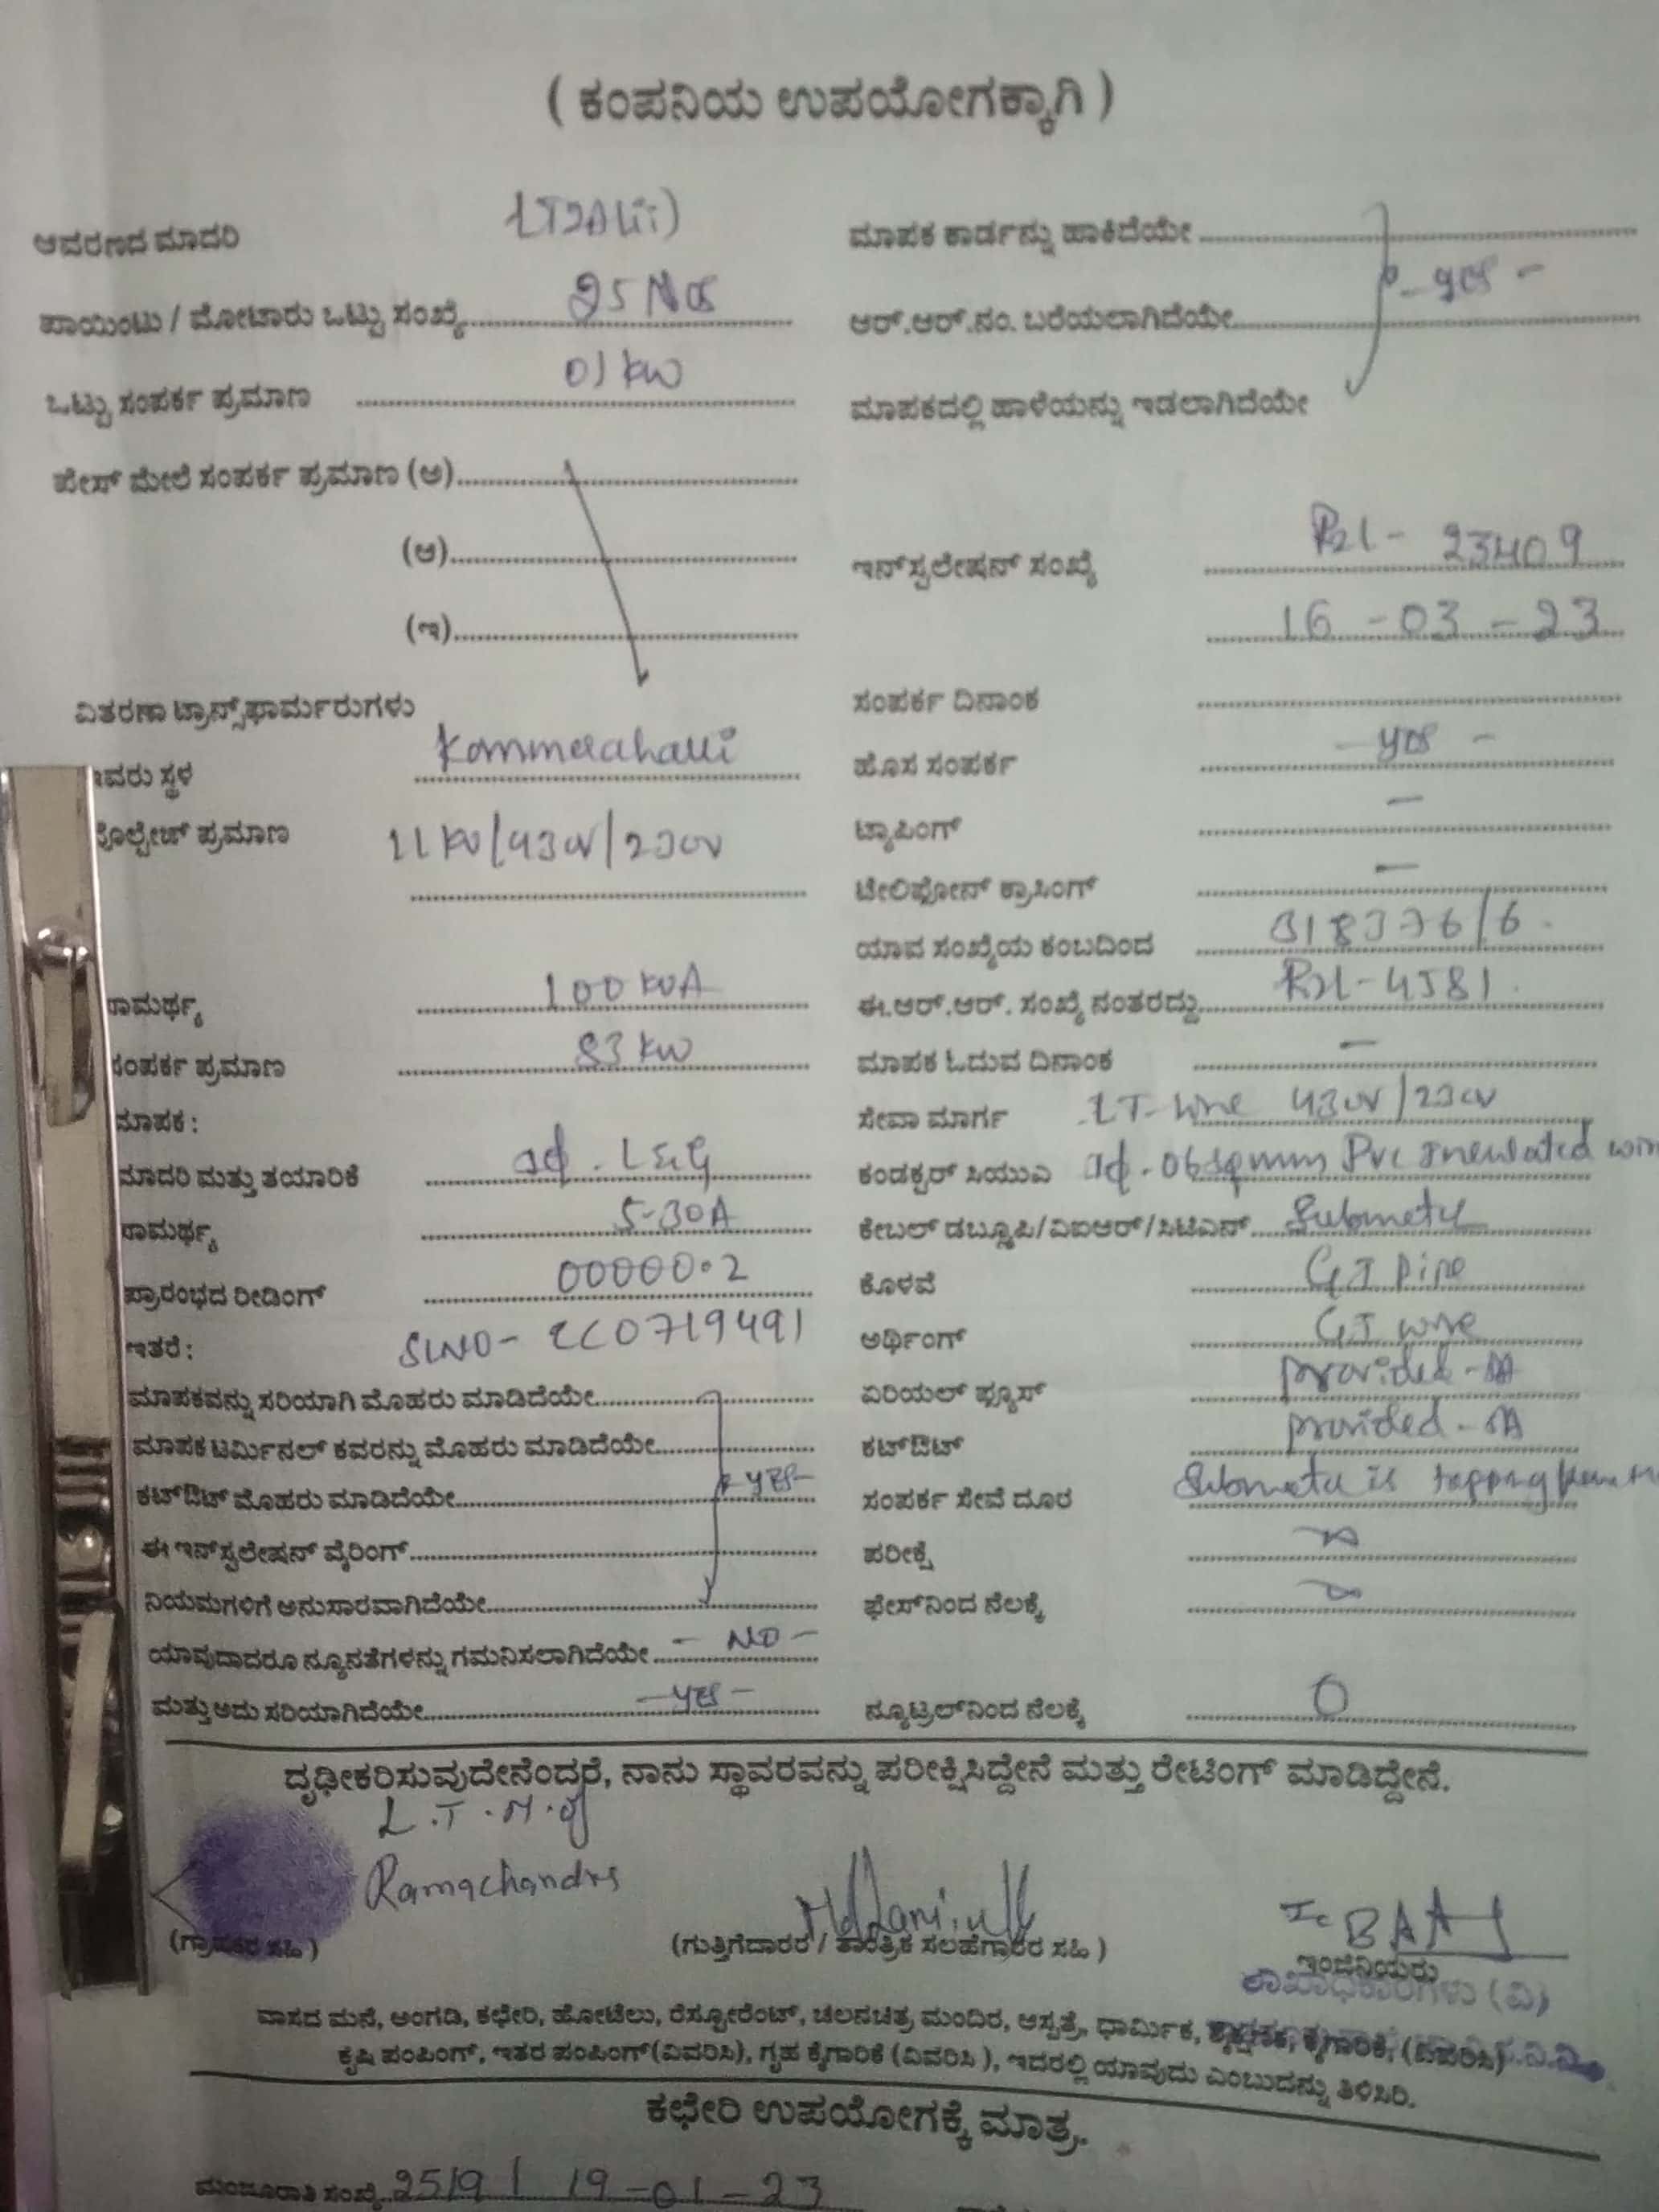 ( ಕಂಪನಿಯ ಉಪಯೋಗಕ್ಕಾಗಿ )
ಆವರಣದ ಮಾದರಿ
ಪಾಯಿಂಟು / ಮೋಟಾರು ಒಟ್ಟು ಸಂಖ್ಯೆ 25 Nos
ಒಟ್ಟು ಸಂಪರ್ಕ ಪ್ರಮಾಣ 01 kw
ಪೇಸ್ ಮೇಲೆ ಸಂಪರ್ಕ ಪ್ರಮಾಣ (ಅ)
(ಆ)
(ಇ)
ವಿತರಣಾ ಟ್ರಾನ್ಸ್‌ಫಾರ್ಮರುಗಳು
ಇವರು ಸ್ಥಳ
ವೋಲ್ಟೇಜ್ ಪ್ರಮಾಣ 11 kv/430v/230v
ಸಾಮರ್ಥ್ಯ 100 kVA
ಸಂಪರ್ಕ ಪ್ರಮಾಣ 83 kw
ಮಾಪಕ :
ಮಾದರಿ ಮತ್ತು ತಯಾರಿಕೆ L&G
ಸಾಮರ್ಥ್ಯ 5-30A
ಪ್ರಾರಂಭದ ರೀಡಿಂಗ್ 00000.2
ಇತರೆ :
ಮಾಪಕವನ್ನು ಸರಿಯಾಗಿ ಮೊಹರು ಮಾಡಿದೆಯೇ
ಮಾಪಕ ಟರ್ಮಿನಲ್ ಕವರನ್ನು ಮೊಹರು ಮಾಡಿದೆಯೇ
ಕಟ್‌ಔಟ್ ಮೊಹರು ಮಾಡಿದೆಯೇ - yes -
ಈ ಇನ್‌ಸ್ಟಲೇಷನ್ ವೈರಿಂಗ್
ನಿಯಮಗಳಿಗೆ ಅನುಸಾರವಾಗಿದೆಯೇ
ಯಾವುದಾದರೂ ನ್ಯೂನತೆಗಳನ್ನು ಗಮನಿಸಲಾಗಿದೆಯೇ - NO -
ಮತ್ತು ಅದು ಸರಿಯಾಗಿದೆಯೇ - yes -
ಮಾಪಕ ಕಾರ್ಡನ್ನು ಹಾಕಿದೆಯೇ
ಆರ್.ಆರ್.ನಂ. ಬರೆಯಲಾಗಿದೆಯೇ - yes -
ಮಾಪಕದಲ್ಲಿ ಹಾಳೆಯನ್ನು ಇಡಲಾಗಿದೆಯೇ
ಇನ್‌ಸ್ಟಲೇಷನ್ ಸಂಖ್ಯೆ 23409
16 - 03 - 23
ಸಂಪರ್ಕ ದಿನಾಂಕ
ಹೊಸ ಸಂಪರ್ಕ - yes -
ಟ್ಯಾಪಿಂಗ್ -
ಟೇಲಿಫೋನ್ ಕ್ರಾಸಿಂಗ್ -
ಯಾವ ಸಂಖ್ಯೆಯ ಕಂಬದಿಂದ
ಈ.ಆರ್.ಆರ್. ಸಂಖ್ಯೆ ನಂತರದ್ದು
ಮಾಪಕ ಓದುವ ದಿನಾಂಕ -
ಸೇವಾ ಮಾರ್ಗ LT-line 430v/230v
ಕಂಡಕ್ಟರ್ ಸಿಯುಎ
ಕೇಬಲ್ ಡಬ್ಲೂಪಿ/ವಿಐಆರ್/ಸಿಟಿಎಸ್ Submeter
ಕೊಳವೆ GI pipe
ಅರ್ಥಿಂಗ್ GI wire
ಏರಿಯಲ್ ಫ್ಯೂಸ್ provided
ಕಟ್‌ಔಟ್ provided
ಸಂಪರ್ಕ ಸೇವೆ ದೂರ Submeter is tapping
ಪರೀಕ್ಷೆ
ಫೇಸ್‌ನಿಂದ ನೆಲಕ್ಕೆ
ನ್ಯೂಟ್ರಲ್‌ನಿಂದ ನೆಲಕ್ಕೆ 0
ದೃಢೀಕರಿಸುವುದೇನೆಂದರೆ, ನಾನು ಸ್ಥಾವರವನ್ನು ಪರೀಕ್ಷಿಸಿದ್ದೇನೆ ಮತ್ತು ರೇಟಿಂಗ್ ಮಾಡಿದ್ದೇನೆ.
L.T.M.of
Ramachandra
(ಗ್ರಾಹಕರ ಸಹಿ)
(ಗುತ್ತಿಗೆದಾರರ / ತಾಂತ್ರಿಕ ಸಲಹೆಗಾರರ ಸಹಿ)
ಇಂಜಿನಿಯರು
ಶಾಖಾಧಿಕಾರಿಗಳು (ವಿ)
ವಾಸದ ಮನೆ, ಅಂಗಡಿ, ಕಛೇರಿ, ಹೋಟೆಲು, ರೆಸ್ಟೋರೆಂಟ್, ಚಲನಚಿತ್ರ ಮಂದಿರ, ಆಸ್ಪತ್ರೆ, ಧಾರ್ಮಿಕ, ಶೈಕ್ಷಣಿಕ, ಕೈಗಾರಿಕೆ, (ವಿವರಿಸಿ)
ಕೃಷಿ ಪಂಪಿಂಗ್, ಇತರ ಪಂಪಿಂಗ್ (ವಿವರಿಸಿ), ಗೃಹ ಕೈಗಾರಿಕೆ (ವಿವರಿಸಿ), ಇದರಲ್ಲಿ ಯಾವುದು ಎಂಬುದನ್ನು ತಿಳಿಸಿರಿ.
ಕಛೇರಿ ಉಪಯೋಗಕ್ಕೆ ಮಾತ್ರ.
ಮಂಜೂರಾತಿ ಸಂಖ್ಯೆ 19-01-23